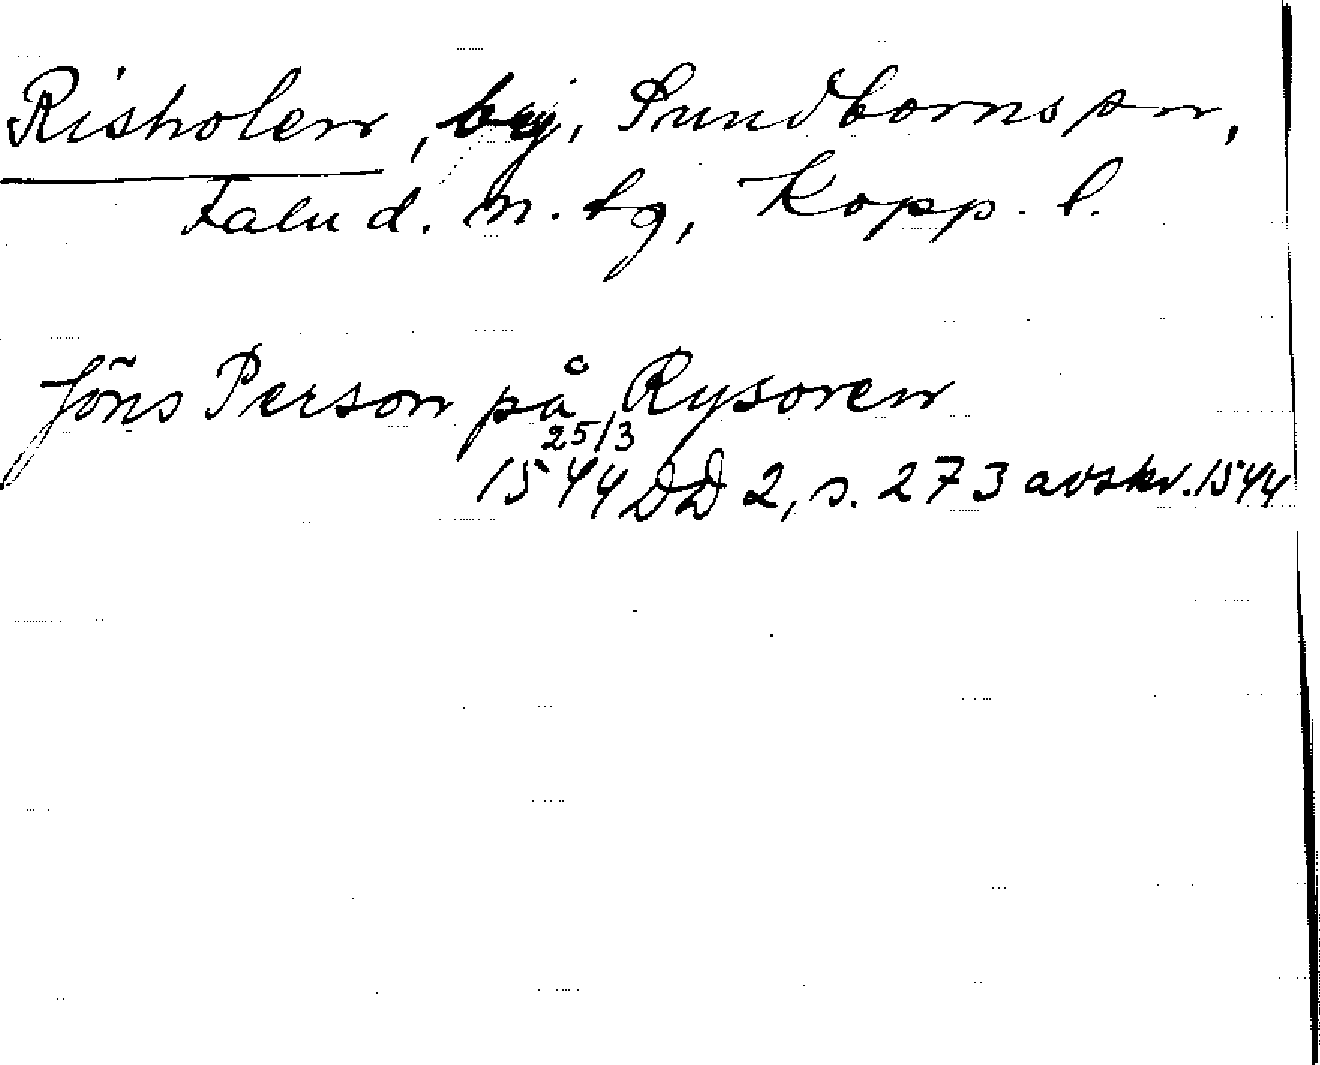 Risholen, by, Sundborns sn,
Falu d. n. tg, Kopp. l.
Jöns Person på Rysoren
25/3
1544 DD 2, s. 273 avskr. 1544